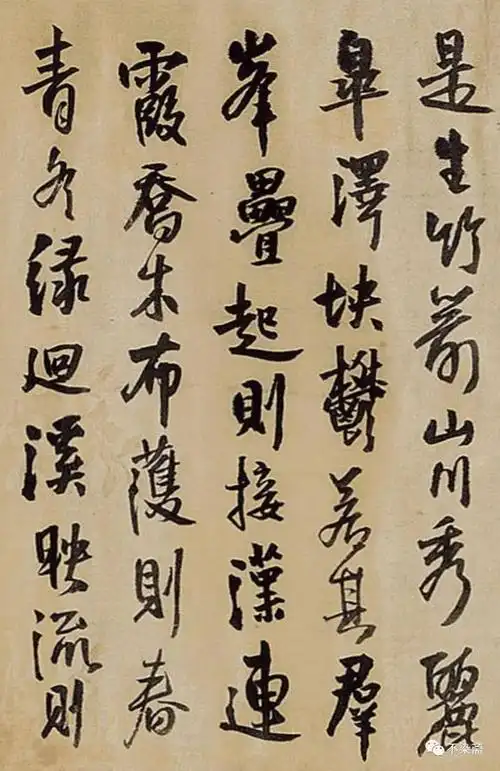 是生竹箭山川秀麗
皐澤坱鬱若其羣
峯疊起則接漢連
霞喬木布護則春
青冬緑迴溪映流則
不染斋